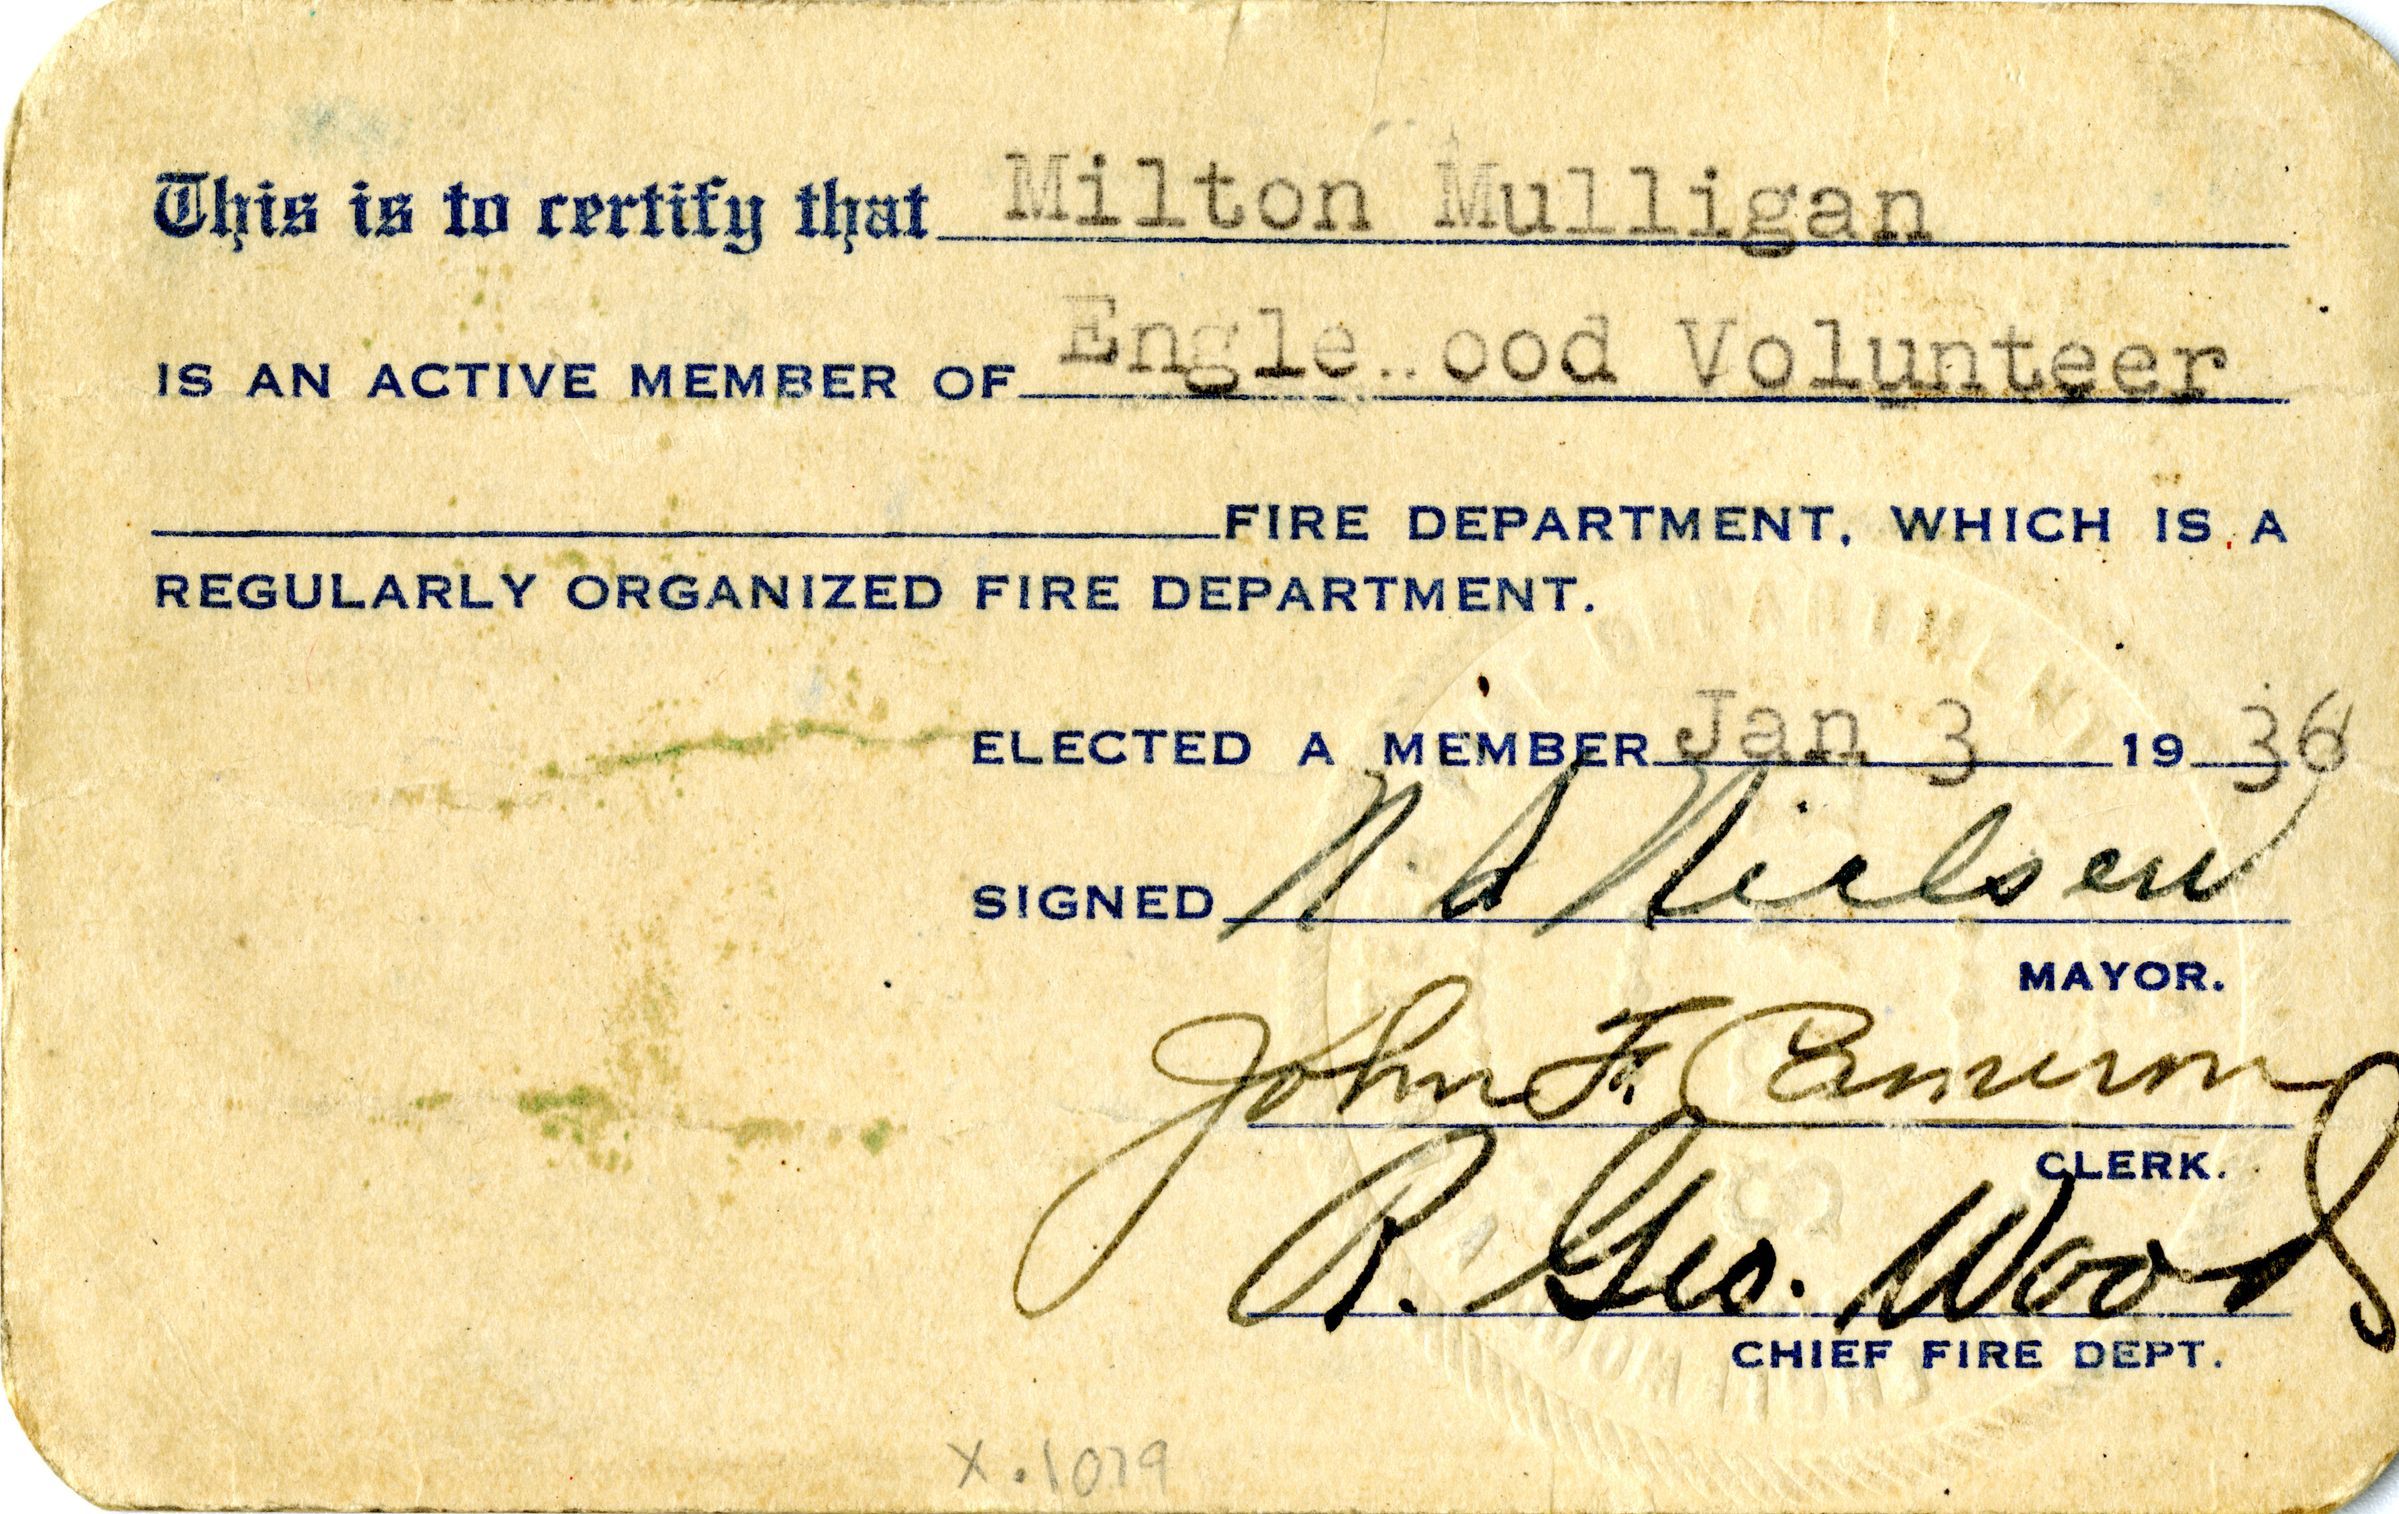 This is to certify that Milton Mulligan
IS AN ACTIVE MEMBER OF Engle..ood Volunteer
FIRE DEPARTMENT, WHICH IS A
REGULARLY ORGANIZED FIRE DEPARTMENT.
ELECTED A MEMBER Jan 3 1936
SIGNED N. A Nielsen
MAYOR.
John F. Cameron
CLERK.
R. Geo. Woods
CHIEF FIRE DEPT.
X.1079